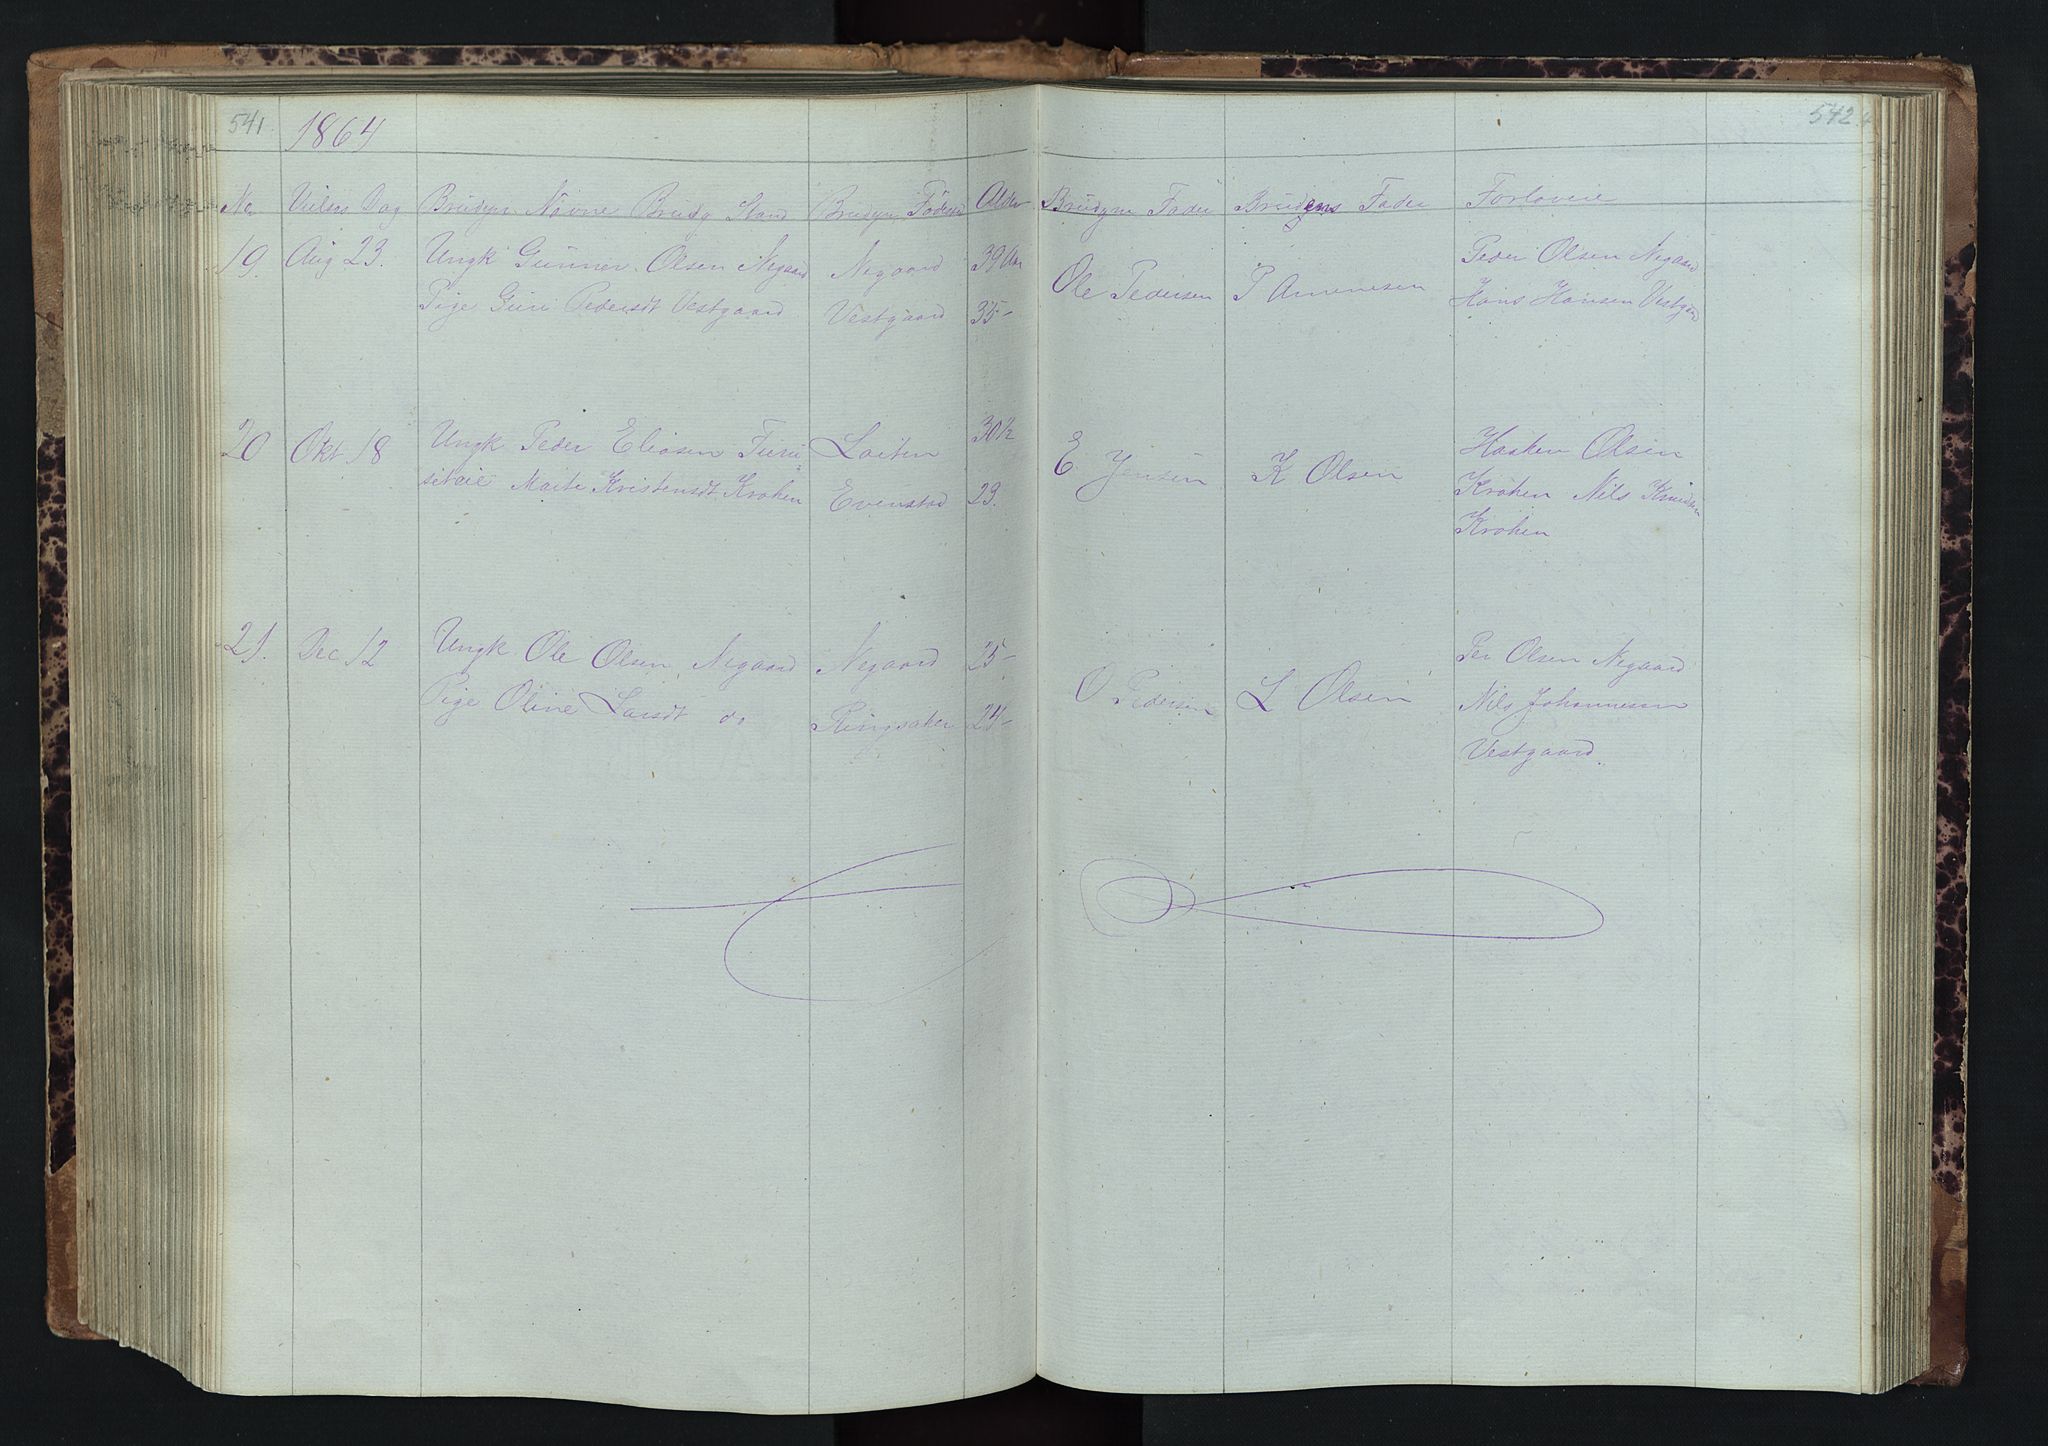 541 1864 542
No Vielses Dag Brudgm Navne Brudg Stand Brudgm Fødested Alder Brudgm Fader Brudgens Fader Forlovere
19. Aug 23. Ungk Gunner Olsen Negaard Negaard 39 Aar Ole Pedersen P Amunesen Peder Olsen Negaard
Pige Guri Pedersdt Vestgaard Vestgaard 35- Hans Hansen Vestgaard
20 Okt 18 Ungk Peder Eliasen Furu Løiten 30½ E. Jensen K Olsen Haaken Olsen
Marte Kristensdt Kroken Evenstad 23. Kroken Nils Knudsen
Kroken
21. Dec 12 Ungk Ole Olsen Negaard Negaard 25- O Pedersen L Olsen Per Olsen Negaard
Pige Oline Larsdt do Ringsaker 24- Nils Johannesen
Vestgaard.